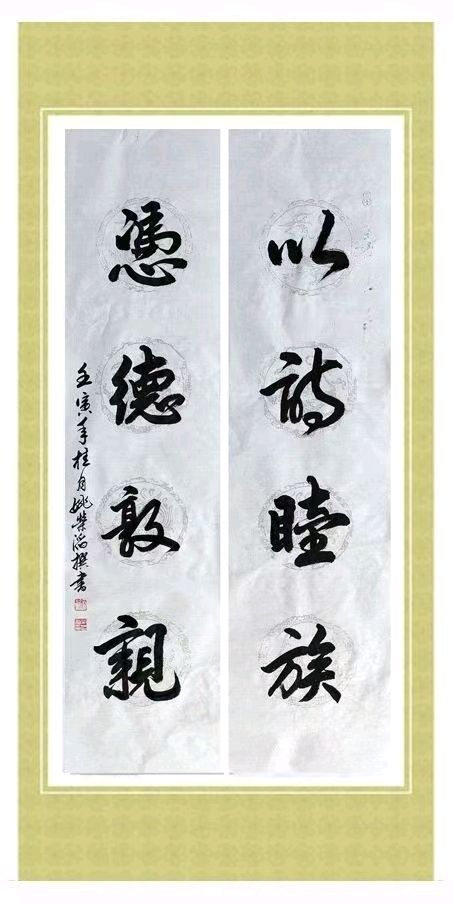 以詩睦族
憑德敦親
壬寅年桂月姚榮滔撰書